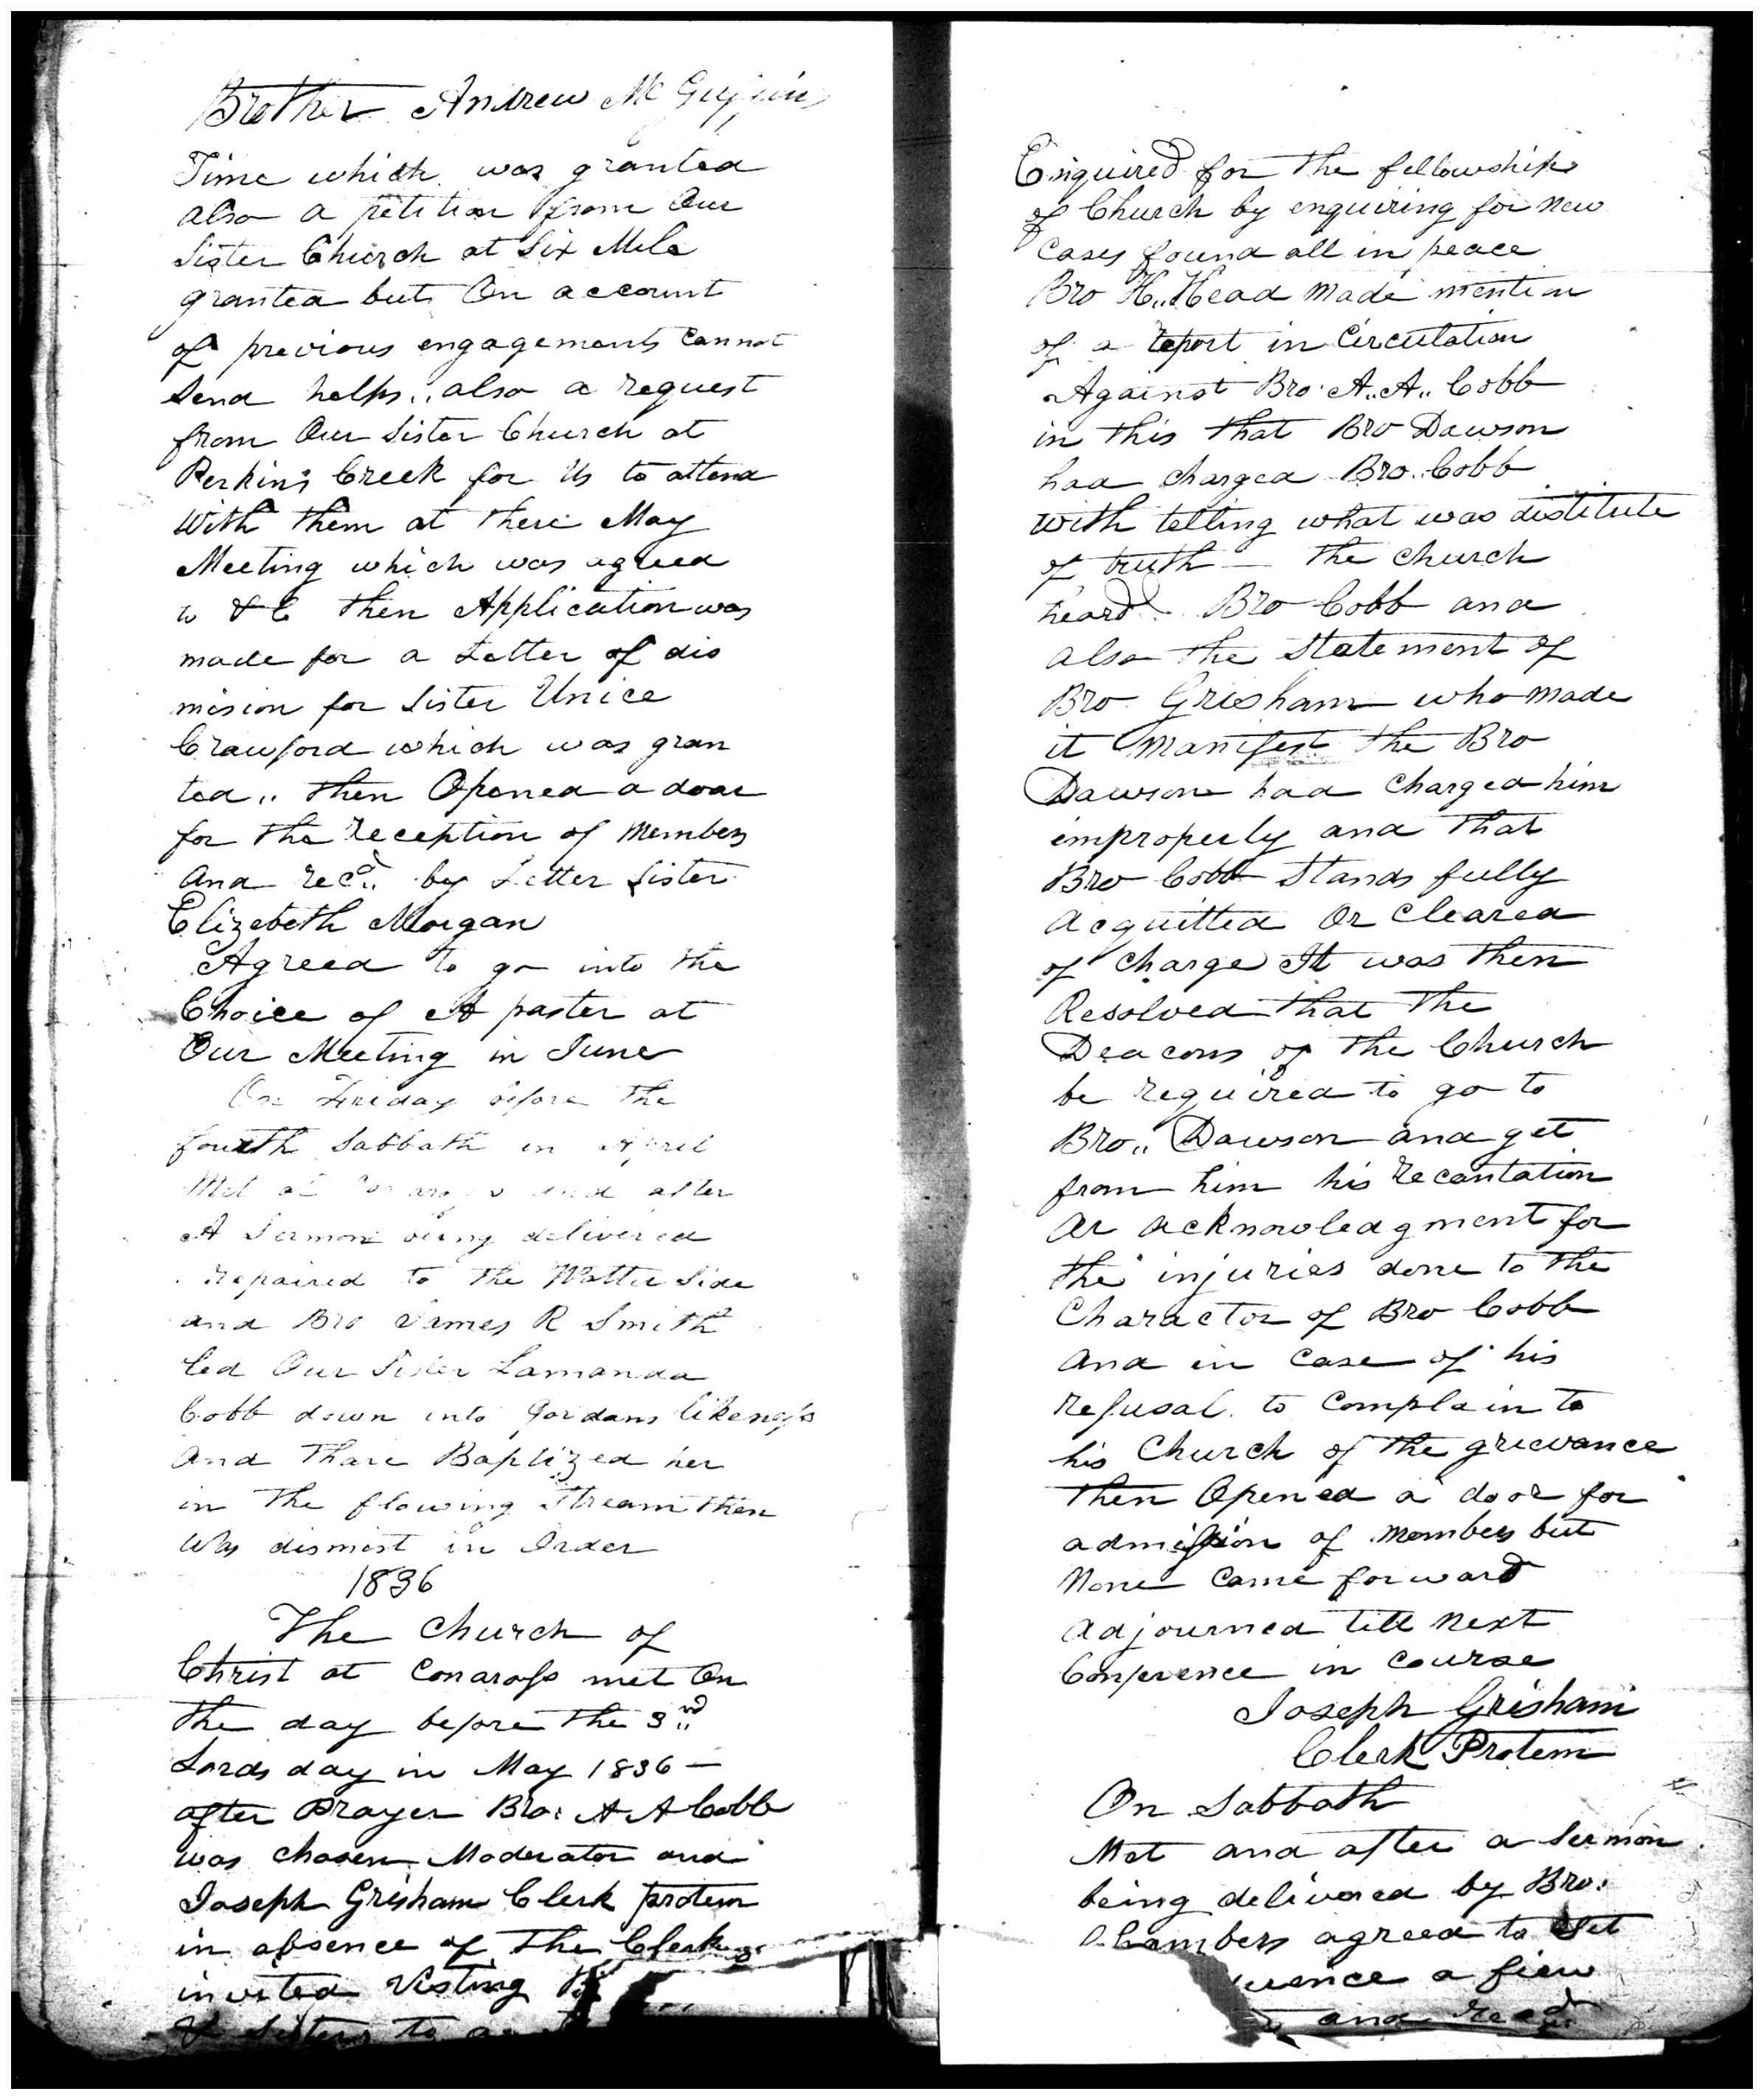 Brother Andrew McGuffin
Time which was granted
also a petition from Our
Sister Church at Six Mile
granted but On account
of previous engagements Cannot
Send helps,, also a request
from Our Sister Church at
Perkins Creek for Us to attend
With them at there May
Meeting which was agreed
to & C then Application was
made for a Letter of dis
mision for Sister Unice
Crawford which was gran
ted,, then Opened a doar
for the reception of Members
and recd,, by Letter Sister
Elizebeth Morgan
Agreed to go into the
Choice of A paster at
Our Meeting in June
On Friday before the
fourth Sabbath in April
Met at and after
A Sermon being delivered
repaired to the Watter Side
and Bro James R Smith
led Our Sister Lamanda
Cobb down into Jordans likeness
and Thare Baptized her
in The flowing Stream then
Was dismist in Order
1836
The Church of
Christ at Conaross met On
the day before the 3rd,,
Lords day in May 1836 –
after Prayer Bro: A A Cobb
was chosen Moderator and
Joseph Grisham Clerk protem
in absence of The Clerk
invited Visting
& Sisters to
Enquired for the fellowship
of Church by enquiring for New
Cases found all in peace
Bro H,, Head Made mention
of a report in Circulation
Against Bro. A,, A,, Cobb
in this that Bro Dawson
had charged Bro. Cobb
with telling what was distitute
of truth – the church
heard Bro Cobb and
also the Statement of
Bro Grisham who made
it Manifest the Bro
Dawson had charged him
improperly and that
Bro Cobb Stands fully
acquitted Or Cleared
of Charge It was then
Resolved that the
Deacons of the Church
be required to go to
Bro,, Dawson and get
from him his recantation
or acknowledgment for
the injuries done to the
Charactor of Bro Cobb
and in Case of his
refusal to Complain to
his Church of the grievance
then Opened a door for
admission of members but
None Came forward
adjourned till next
Conference in Course
Joseph Grisham
Clerk Protem
On Sabbath
Met and after a Sermon
being delivered by Bro:
Chambers agreed to Set
a fiew
and recd